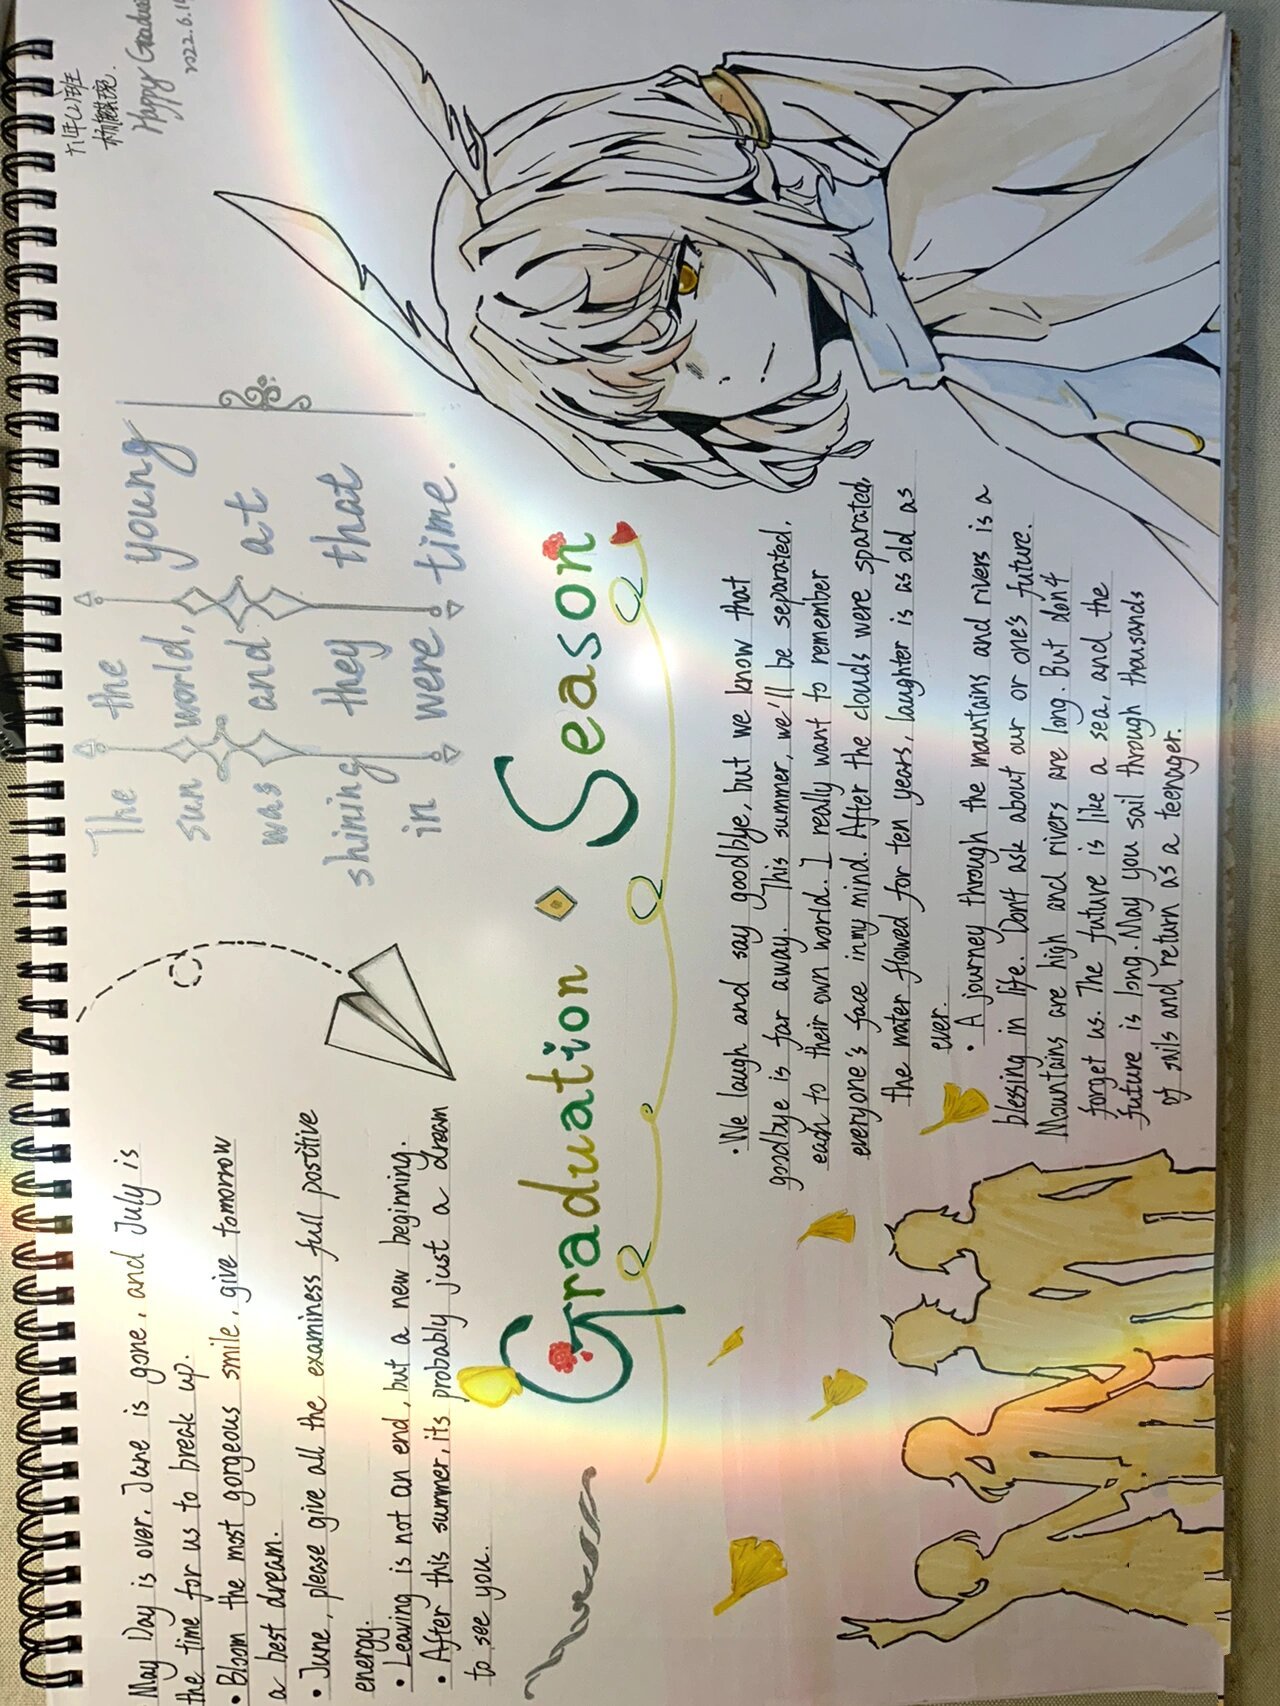 May Day is over. June is gone, and July is
the time for us to break up.
• Bloom the most gorgeous smile, give tomorrow
a best dream.
• June, please give all the examiness full positive
energy.
• Leaving is not an end, but a new beginning.
• After this summer, its probably just a dream
to see you.
The the young
sun world,
was and at
shining they that
in were time.
九年(2)班
Happy
Graduation ◆ Season
• We laugh and say goodbye, but we know that
goodbye is far away. This summer, we'll be separated,
each to their own world. I really want to remember
everyone's face in my mind. After the clouds were sparated,
the water flowed for ten years, laughter is as old as
ever.
• A journey through the mountains and rivers is a
blessing in life. Don't ask about our or one's future.
Mountains are high and rivers are long. But don't
forget us. The future is like a sea, and the
future is long. May you sail through thousands
of sails and return as a teenager.